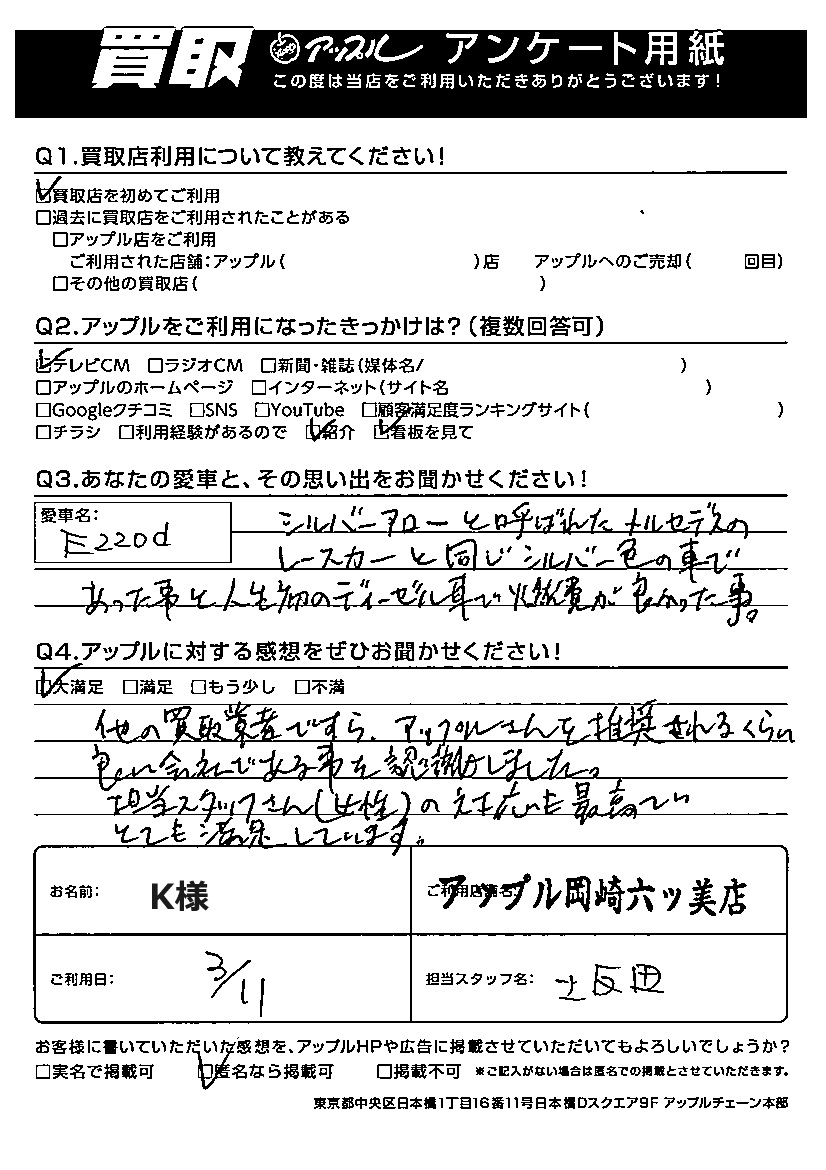 買取 アップル アンケート用紙
この度は当店をご利用いただきありがとうございます!
Q1.買取店利用について教えてください!
☑買取店を初めてご利用
□過去に買取店をご利用されたことがある
□アップル店をご利用
ご利用された店舗:アップル( )店 アップルへのご売却( 回目)
□その他の買取店( )
Q2.アップルをご利用になったきっかけは?(複数回答可)
☑テレビCM □ラジオCM □新聞・雑誌(媒体名/ )
□アップルのホームページ □インターネット(サイト名 )
□Googleクチコミ □SNS □YouTube □顧客満足度ランキングサイト( )
□チラシ □利用経験があるので ☑紹介 ☑看板を見て
Q3.あなたの愛車と、その思い出をお聞かせください!
愛車名:
E220d
シルバーアローと呼ばれたメルセデスの
レースカーと同じシルバー色の車で
あった事と人生初のディーゼル車で燃費が良かった事。
Q4.アップルに対する感想をぜひお聞かせください!
☑大満足 □満足 □もう少し □不満
他の買取業者ですら、アップルさんを推奨されるくらい
良い会社である事を認識しました。
担当スタッフさん(女性)の対応も最高でい
とても満足しています。
お名前: K様
ご利用店舗名: アップル岡崎六ッ美店
ご利用日: 3/11
担当スタッフ名: 土反田
お客様に書いていただいた感想を、アップルHPや広告に掲載させていただいてもよろしいでしょうか?
□実名で掲載可 ☑匿名なら掲載可 □掲載不可 ※ご記入がない場合は匿名での掲載とさせていただきます。
東京都中央区日本橋1丁目16番11号日本橋Dスクエア9F アップルチェーン本部